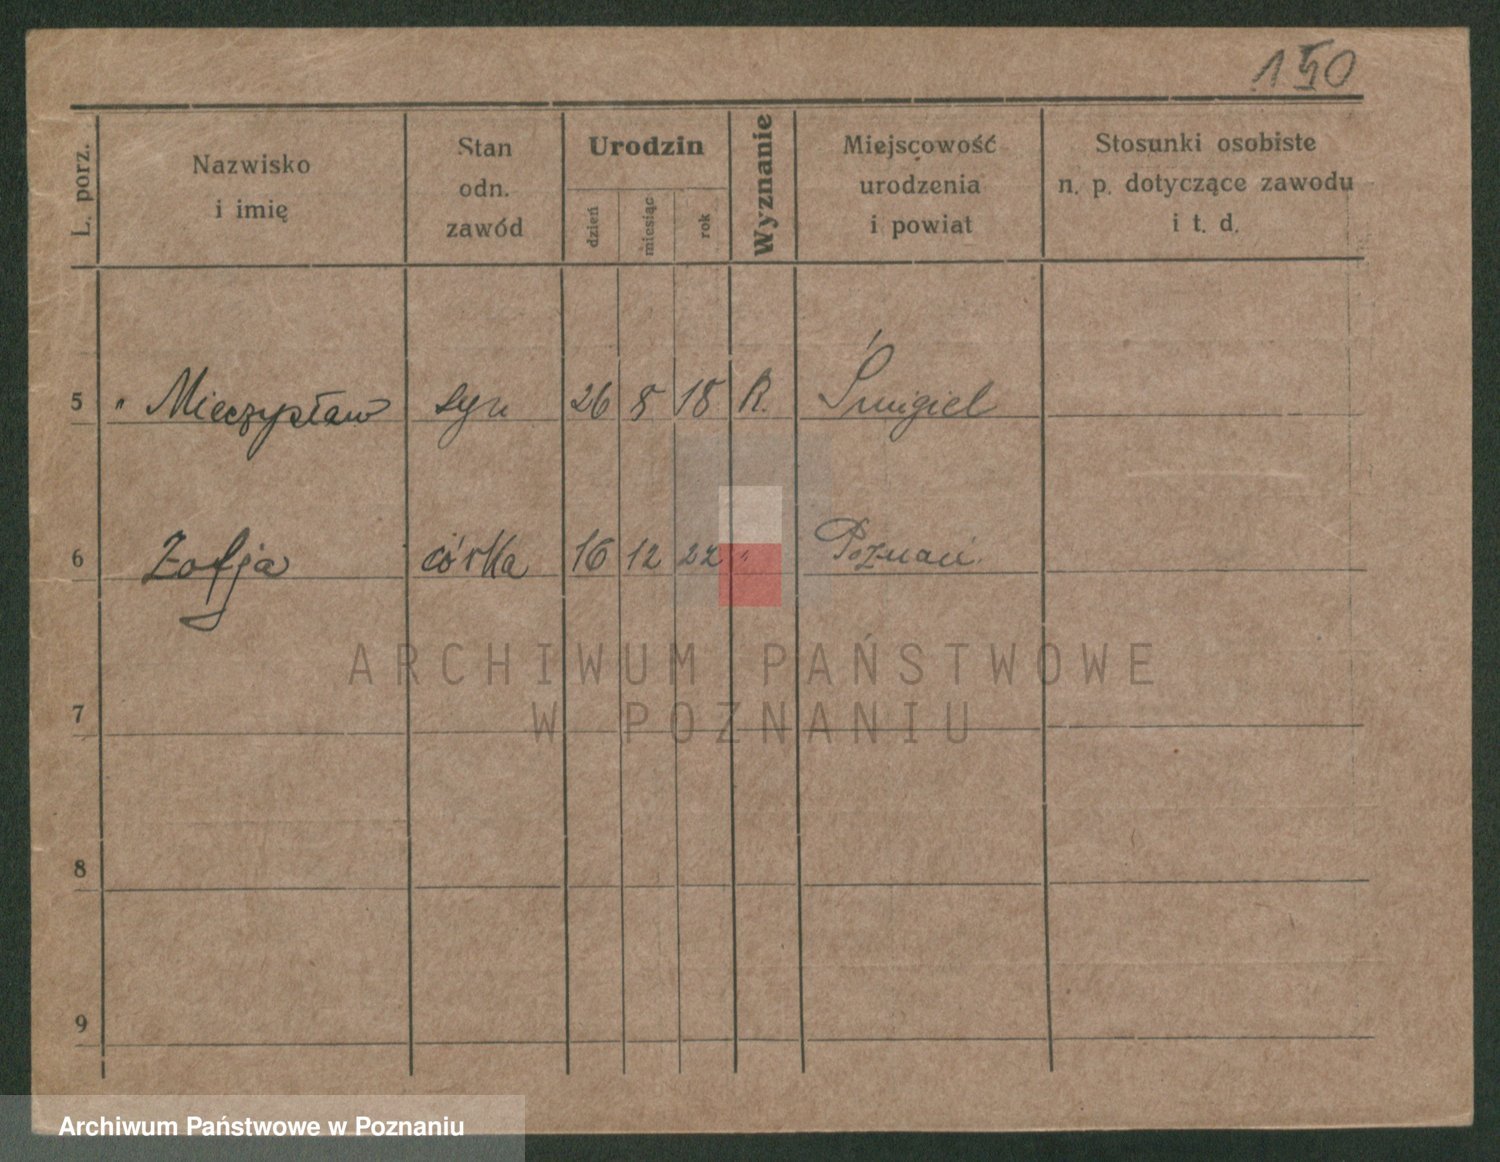 150
L. porz.
Nazwisko
i imię
Stan
odn.
zawód
Urodzin
dzień
miesiąc
rok
Wyznanie
Miejscowość
urodzenia
i powiat
Stosunki osobiste
n. p. dotyczące zawodu
i t. d.
5 " Mieczysław syn 26 8 18 R. Śmigiel
6 Zofja córka 16 12 22 " Poznań
ARCHIWUM PAŃSTWOWE
7
W POZNANIU
8
9
Archiwum Państwowe w Poznaniu